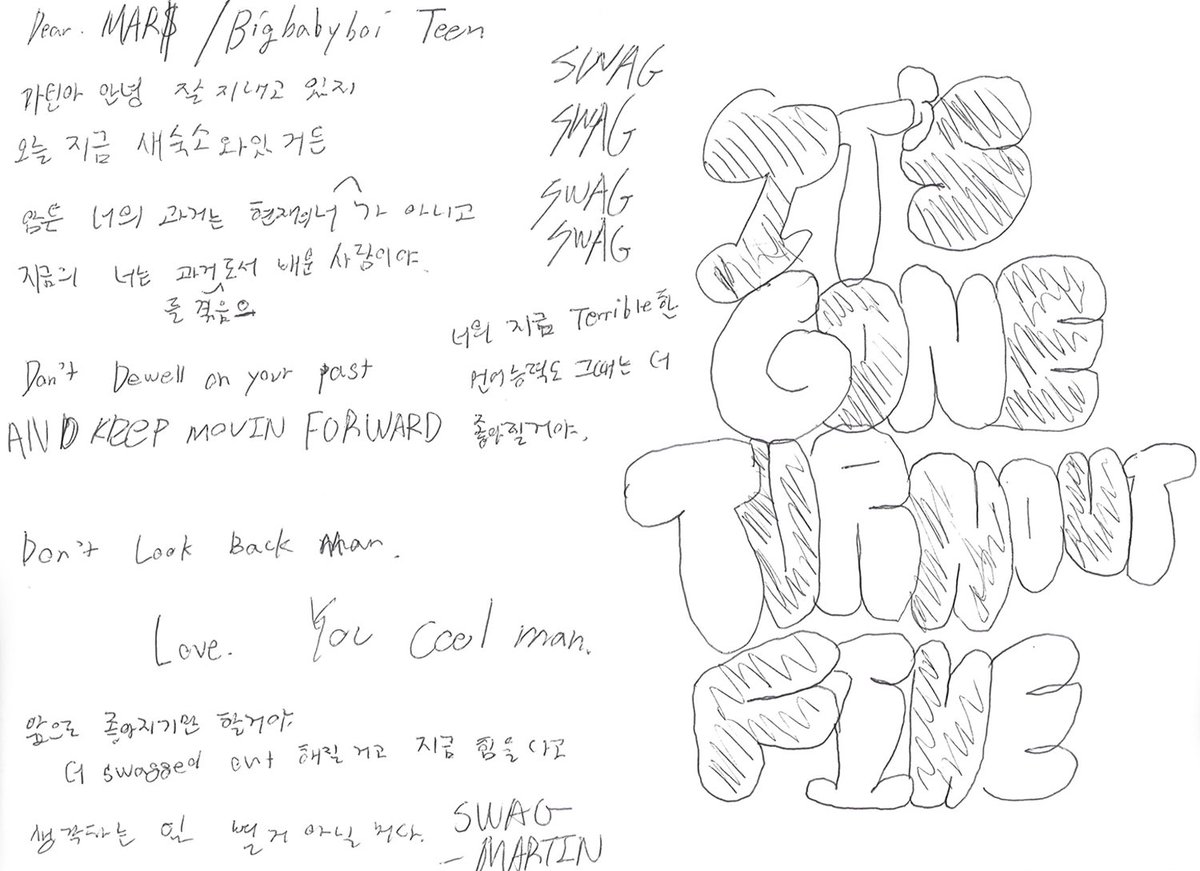 Dear. MAR$ / Bigbabyboi Teen
마틴아 안녕 잘 지내고 있지
오늘 지금 새숙소 와있거든
암튼 너의 과거는 현재의 너가 아니고
지금의 너는 과거도서 배운 사람이야.
를 겪음으
Don't Dewell on your past
AND KEEP MOVIN FORWARD
너의 지금 Terrible한
언어능력도 그때는 더
좋아질거야.
Don't Look Back Man.
Love. You Cool man.
앞으로 좋아지기만 할거야
더 swagged out 해질 거고 지금 힘들다고
생각하는 일 별거 아닐 거다.
SWAG
- MARTIN
SWAG
SWAG
SWAG
SWAG
IT'S
GONE
TURN OUT
FINE